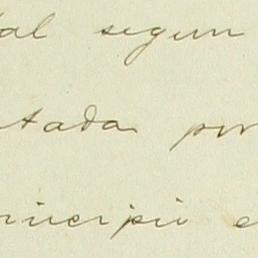 tal segun
tada por
principii e